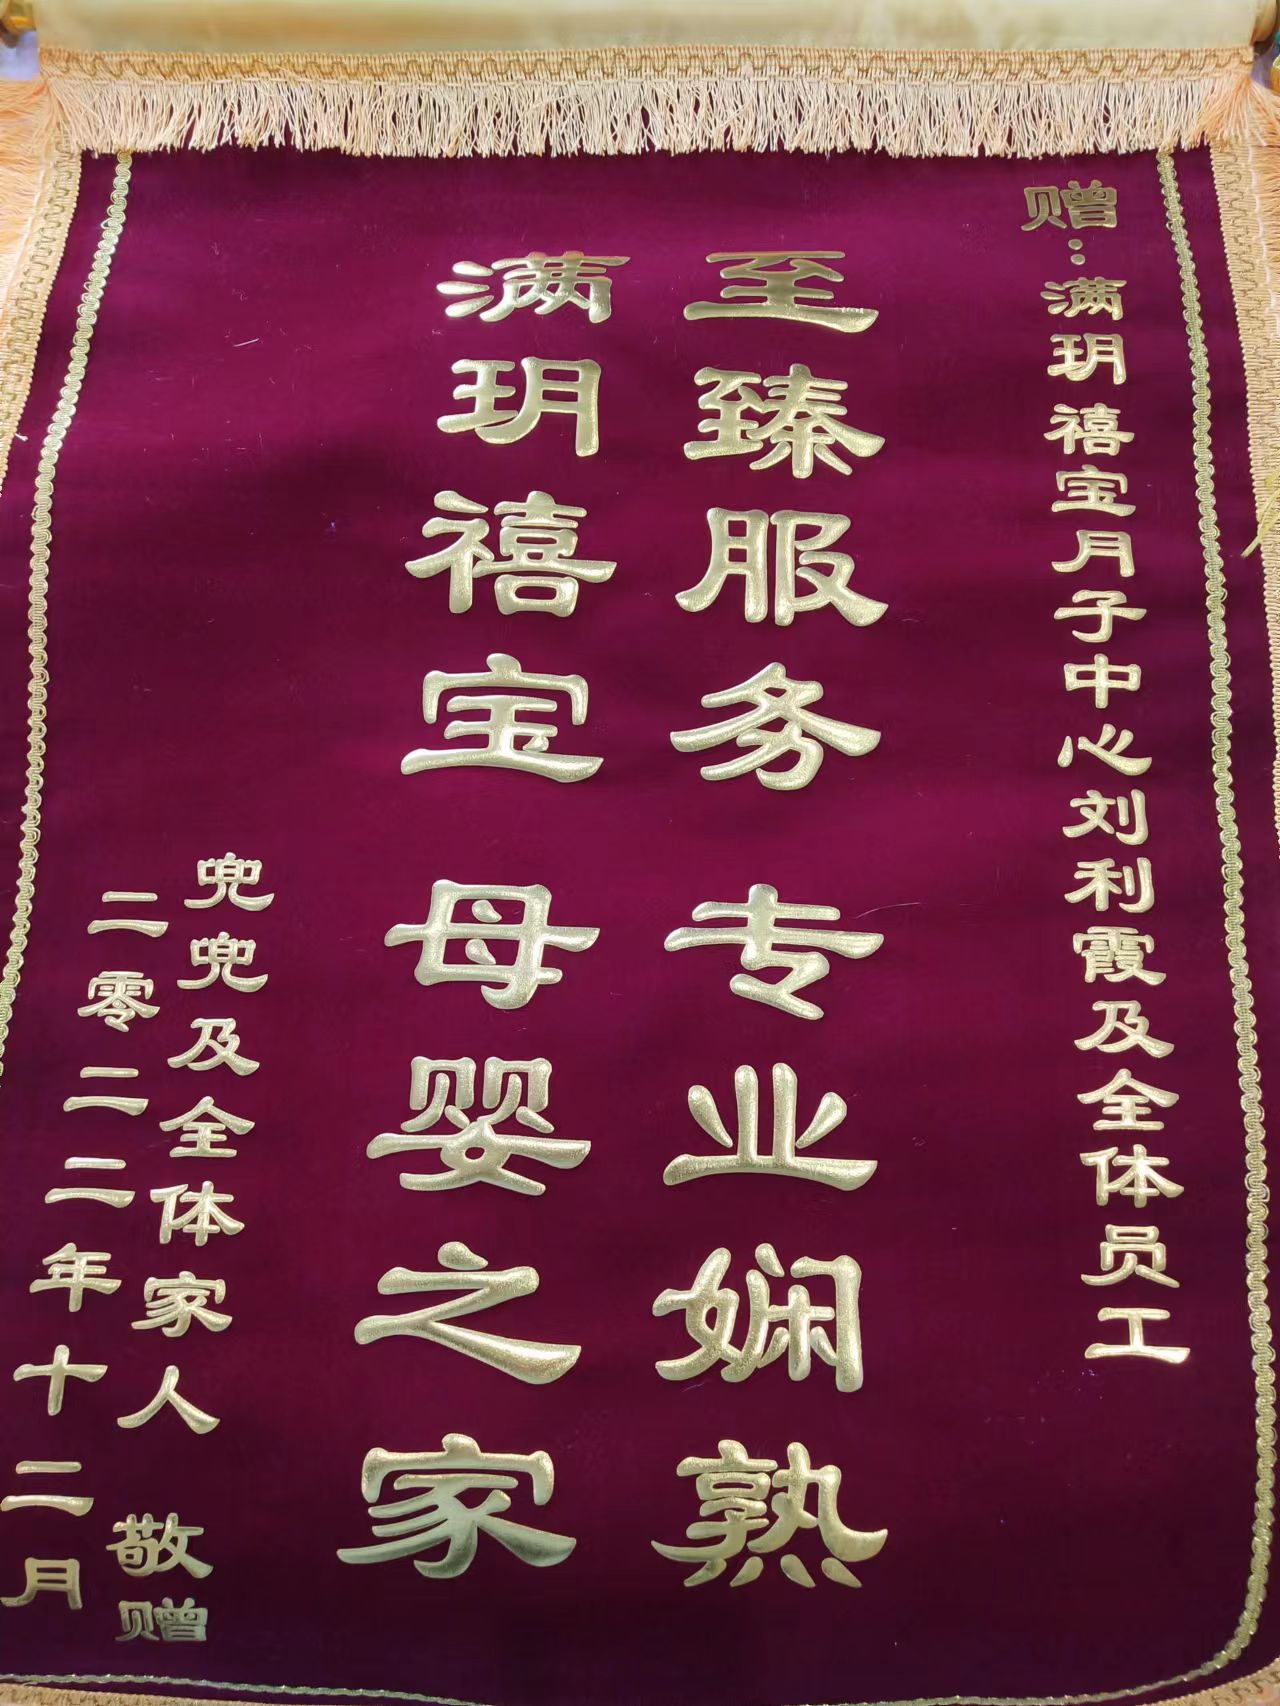 赠：满玥禧宝月子中心刘利霞及全体员工
至臻服务 专业娴熟
满玥禧宝 母婴之家
兜兜及全体家人 敬赠
二零二二年十二月